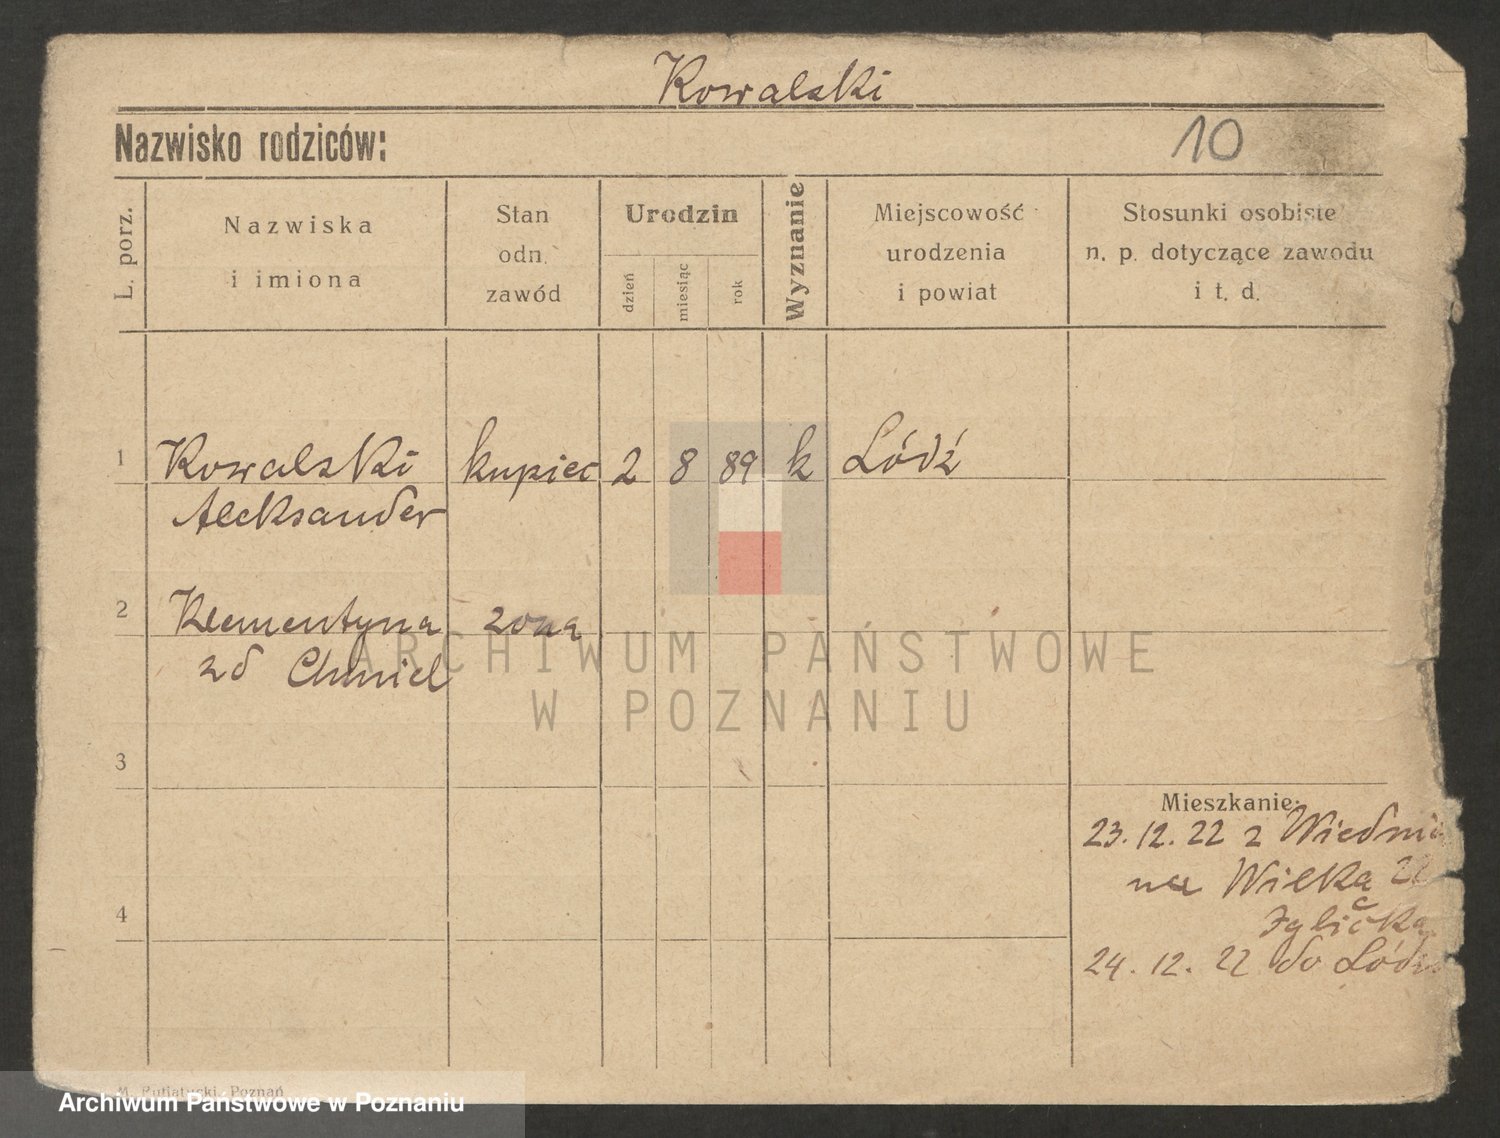 Kowalski
Nazwisko rodziców:
10
L. porz.
Nazwiska
i imiona
Stan
odn.
zawód
Urodzin
dzień
miesiąc
rok
Wyznanie
Miejscowość
urodzenia
i powiat
Stosunki osobiste
n. p. dotyczące zawodu
i t. d.
1 Kowalski kupiec 2 8 89 k Łódź
Aleksander
2 Klementyna żona
zd Chmiel
3
Mieszkanie:
23.12.22 z Wiednia
na Wielka 22
4
24.12.22 do Łódz
ARCHIWUM PAŃSTWOWE
W POZNANIU
M. Putiatycki, Poznań
Archiwum Państwowe w Poznaniu